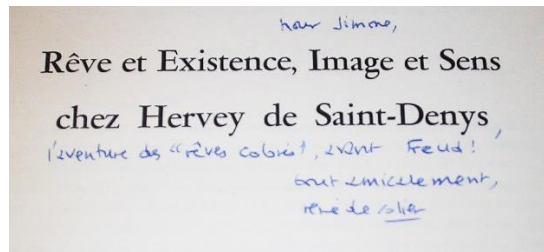 pour Simone,
Rêve et Existence, Image et Sens
chez Hervey de Saint-Denys,
l'aventure des "rêves colorés", avant Freud !
tout amicalement,
rené de solier